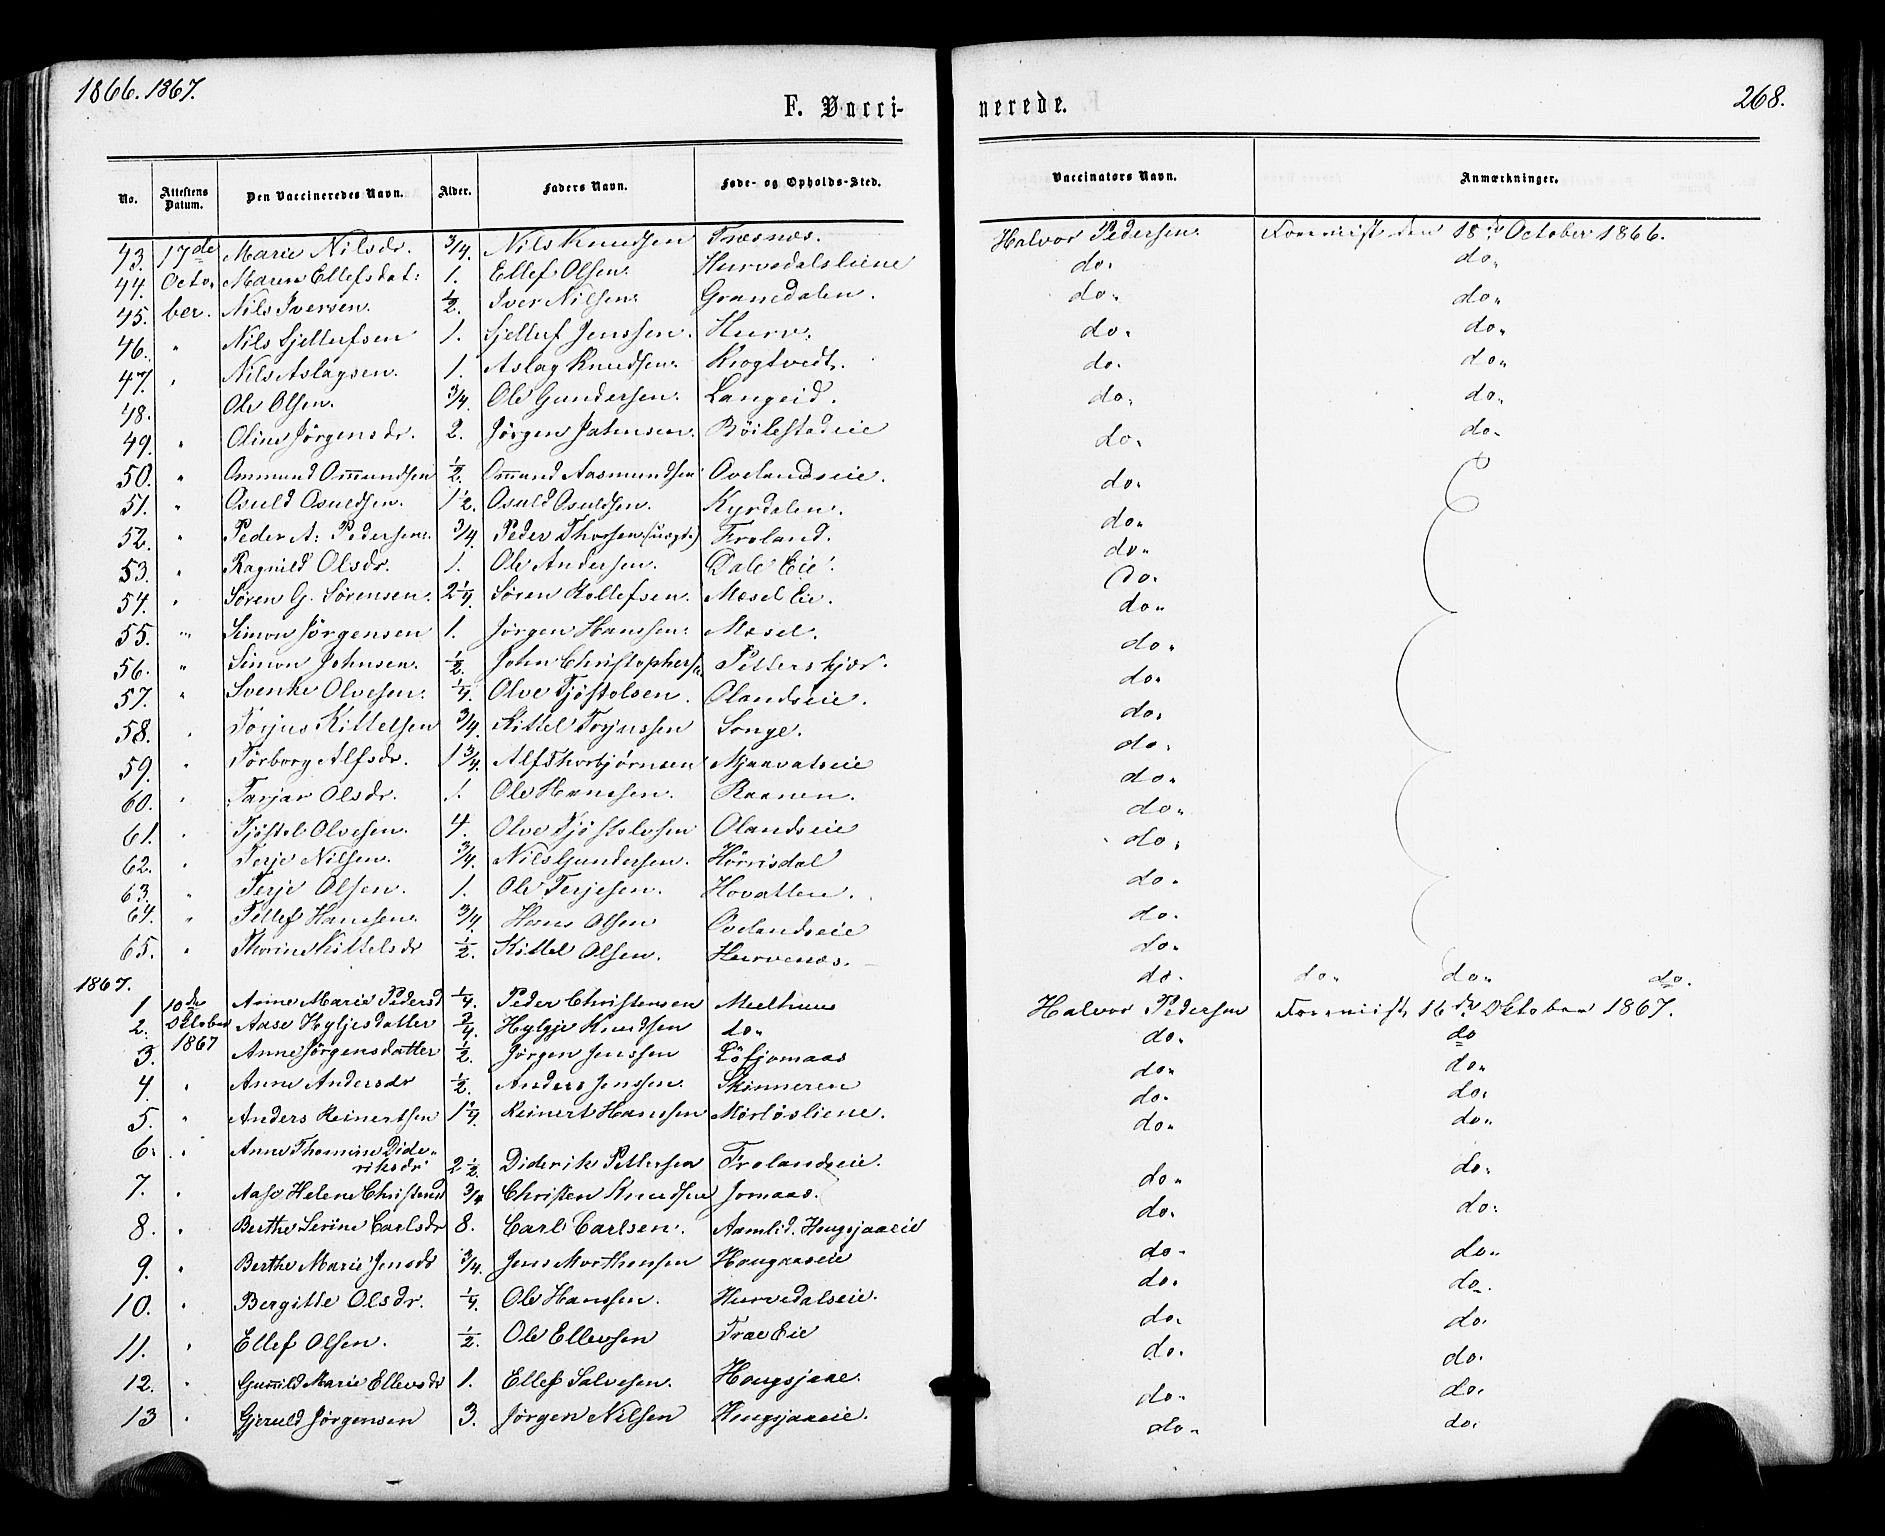 1866. 1867.
F. Vacci-
nerede.
268.
No. Attestens Datum. Den Vaccineredes Navn. Alder. Faders Navn. Føde- og Opholds-Sted. Vaccinators Navn. Anmærkninger.
43. 17de Marie Nilsdr. 3/4 Nils Knudsen Træsnæs. Halvor Pedersen Foreviist den 18de October 1866.
44. Octo- Maren Ellefsdat: 1. Ellef Olsen. Hurvedalsliene do. do.
45. ber. Nils Iversen. 1/2. Iver Nilsen. Granedalen. do. do.
46. " Nils Gjellufsen 1. Gjelluf Jenssen. Hurv. do. do.
47. " Nils Aslagsen. 1. Aslag Knudsen. Krogtvedt. do. do.
48. Ole Olsen. 3/4. Ole Gundersen. Langeid. do. do.
49. " Oline Jørgensdr. 2. Jørgen Bøilestadeie do. do.
50. " Ommund Ommundsen 1/2. Ommund Aasmundsen Ovelandseie. do.
51. " Osuld Osuldsen. 1 1/2. Osuld Osuldsen. Kyrdalen. do.
52. " Peder A. Pedersen. 3/4. Peder Thorsen Froland. do.
53. " Ragnild Olsdr. 1. Ole Andersen. Dale Eie. do.
54. " Søren G. Sørensen. 2 1/4. Søren Rollefsen. Mæsel Eie. do.
55. " Simon Jørgensen 1. Jørgen Hanssen. Mæsel. do.
56. " Simon Johnsen. 1/2. John Christophers. Petterskjær. do.
57. " Svenke Olvesen. 1/4. Olve Tjøstolsen. Olandseie. do.
58. " Torjus Kittelsen 3/4. Kittel Torjussen Songe. do.
59. " Torborg Alfsdr. 1 3/4. Alf Thorbjørnsen Mjaavatseie do.
60. " Tarjar Olsdr. 1. Ole Hanssen. Raanen. do.
61. " Tjøstel Olvesen. 4. Olve Tjøstolvsen Olandseie do.
62. " Terje Nilsen. 3/4. Nils Gundersen. Hørrisdal do.
63. " Terje Olsen. 1. Ole Terjesen. Hovatten. do.
64. " Tellef Hanssen. 3/4. Hans Olsen Ovelandseie do.
65. " Thorine Kittelsdr 1/2. Kittel Olsen. Hurvenæs. do. do. do. do.
1867.
1 10de Anne Marie Pedersd 1/4. Peder Christensen Mælhuus Halvor Pedersen Foreviist 16de Oktober 1867.
2. Oktober Aase Hyljesdatter 3/4. Hylgje Knudsen do. do. do
3. 1867 Anne Jørgensdatter 1/2. Jørgen Jenssen Løfjomaas do. do.
4. " Anne Andersdr 1/2. Anders Jenssen. Skinneren do. do.
5. " Anders Reinertsen 1 1/4. Reinert Hanssen Mørløsliene. do. do.
6. " Anne Thomine Dide-
riksdr 2 1/2. Diderik Pettersen Frolandseie. do. do.
7. " Aase Helene Christensd 3/4 Christen Knudsen Jomaas. do. do.
8. " Berthe Serine Carlsdr 8. Carl Carlsen. Aamlid. Hougsjaaeie do. do.
9. " Berthe Marie Jensdr 3/4. Jens Morthensen Hougaaseie do. do.
10. " Bergitte Olsdr. 1/4. Ole Hanssen. Hurvedalseie. do. do.
11. " Ellef Olsen. 1/2. Ole Ellevsen Trae Eie do. do.
12. " Gunnild Marie Ellevsdr 1. Ellef Salvesen. Hougsjaae. do. do.
13 " Gjeruld Jørgensen 3. Jørgen Nilsen Hougsjaaeie. do. do.